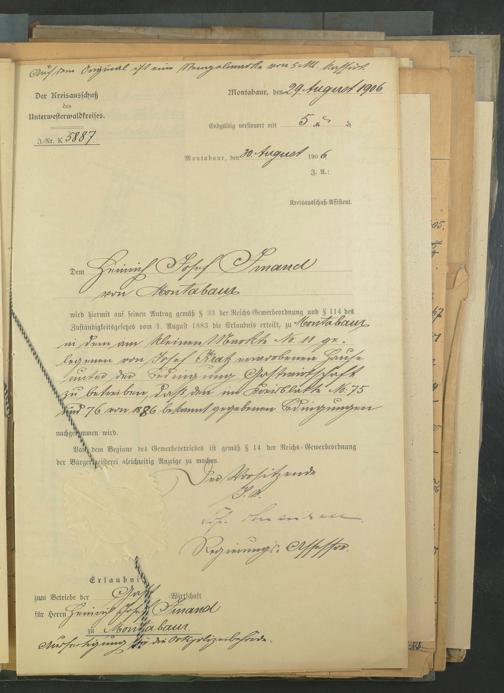 Auf dem Original ist eine Stempelmarke von 5 M. kassirt.
Der Kreisausschuß
des
Unterwesterwaldkreises.
J.-Nr. K 5887
Montabaur, den 29. August 1906
Endgültig versteuert mit 5 M
Montabaur, den 30. August 1906.
J. A.:
Kreisausschuß-Assistent.
Dem Heinrich Josef
von Montabaur
wird hiermit auf seinen Antrag gemäß § 33 der Reichs-Gewerbeordnung und § 114 des
Zuständigkeitsgesetzes vom 1. August 1883 die Erlaubnis erteilt, zu Montabaur
in dem am kleinen Markte № 11 ge-
legenen von Josef erworbenen Hause
unter der Bedingung Gastwirtschaft
zu betreiben, daß den im Kreisblatte № 75
und 76 von 1886 bekannt gegebenen Bedingungen
nachgekommen wird.
Von dem Beginne des Gewerbebetriebes ist gemäß § 14 der Reichs-Gewerbeordnung
der Bürgermeisterei gleichzeitig Anzeige zu machen.
Der Vorsitzende
J. V.
Regierungs-Assessor.
Erlaubnis
zum Betriebe der Gast-Wirtschaft
für Herrn Heinrich Josef
zu Montabaur
Ausfertigung für die Ortspolizeibehörde.